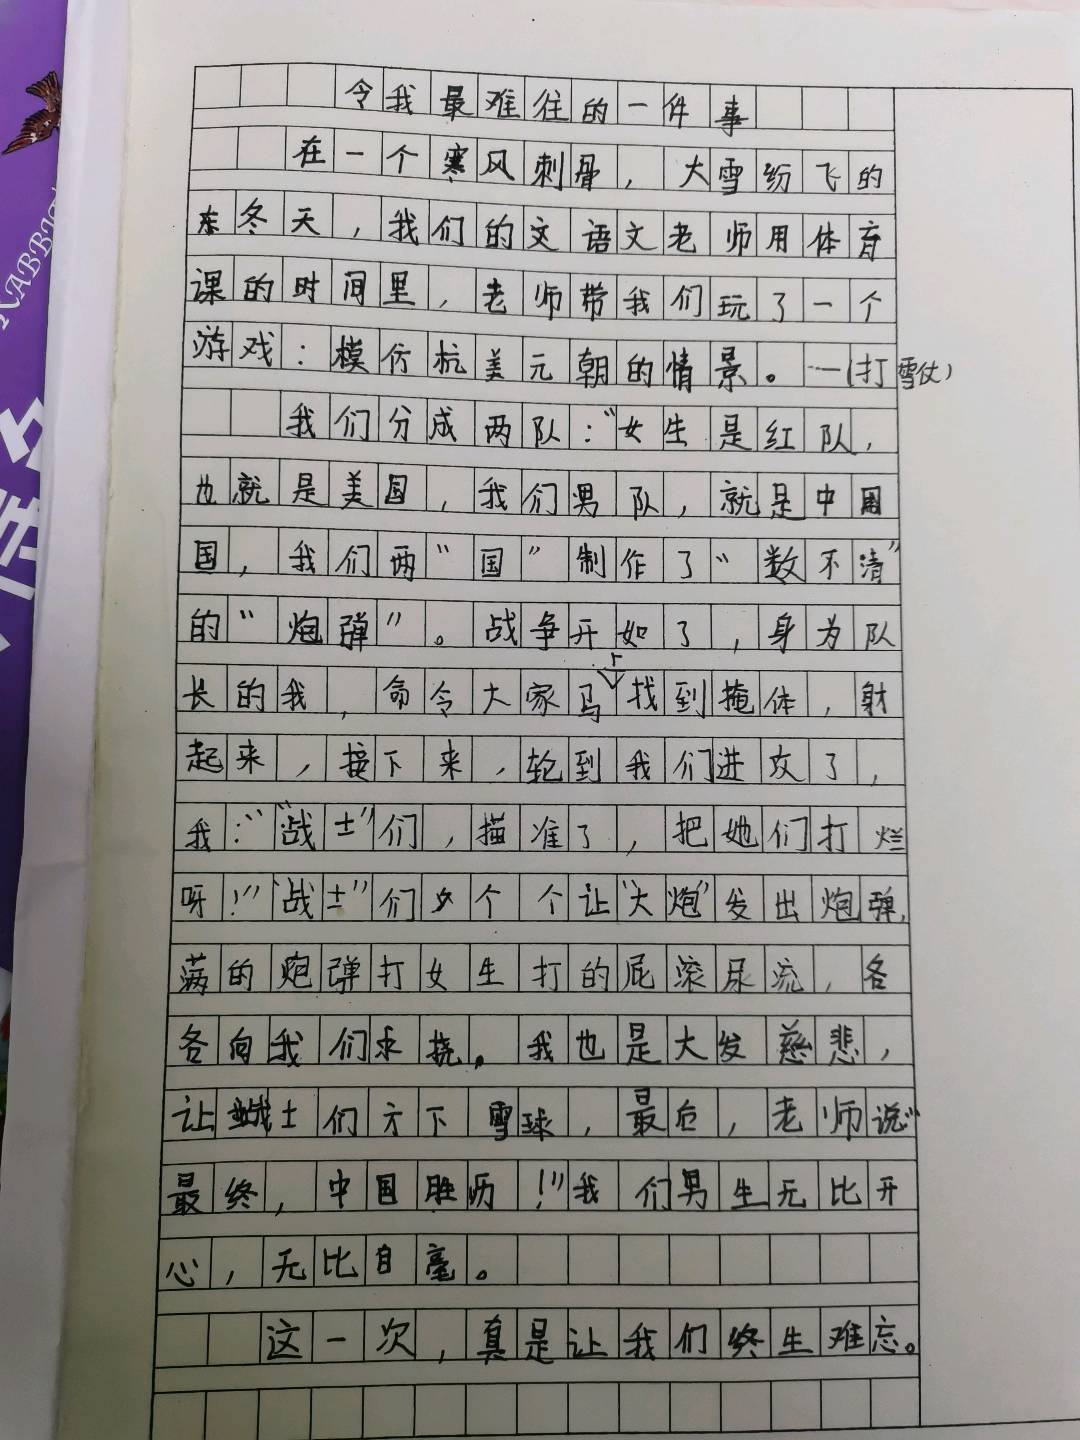 令我最难往的一件事
在一个寒风刺骨，大雪纷飞的
冬天，我们的文语文老师用体育
课的时间里，老师带我们玩了一个
游戏：模仿杭美元朝的情景。一(打雪仗)
我们分成两队：“女生是红队，
也就是美国，我们男队，就是中
国，我们两“国”制作了“数不清”
的“炮弹”。战争开如了，身为队
长的我，命令大家马上找到掩体，射
起来，接下来，轮到我们进攻了，
我：“‘战士’们，描准了，把她们打烂
呀！”“战士”们个个让“大炮”发出炮弹，
满的炮弹打女生打的屁滚尿流，各
各向我们求挠。我也是大发慈悲，
让战士们方下雪球，最后，老师说“
最终，中国胜历！”我们男生无比开
心，无比自毫。
这一次，真是让我们终生难忘。
RABBIT